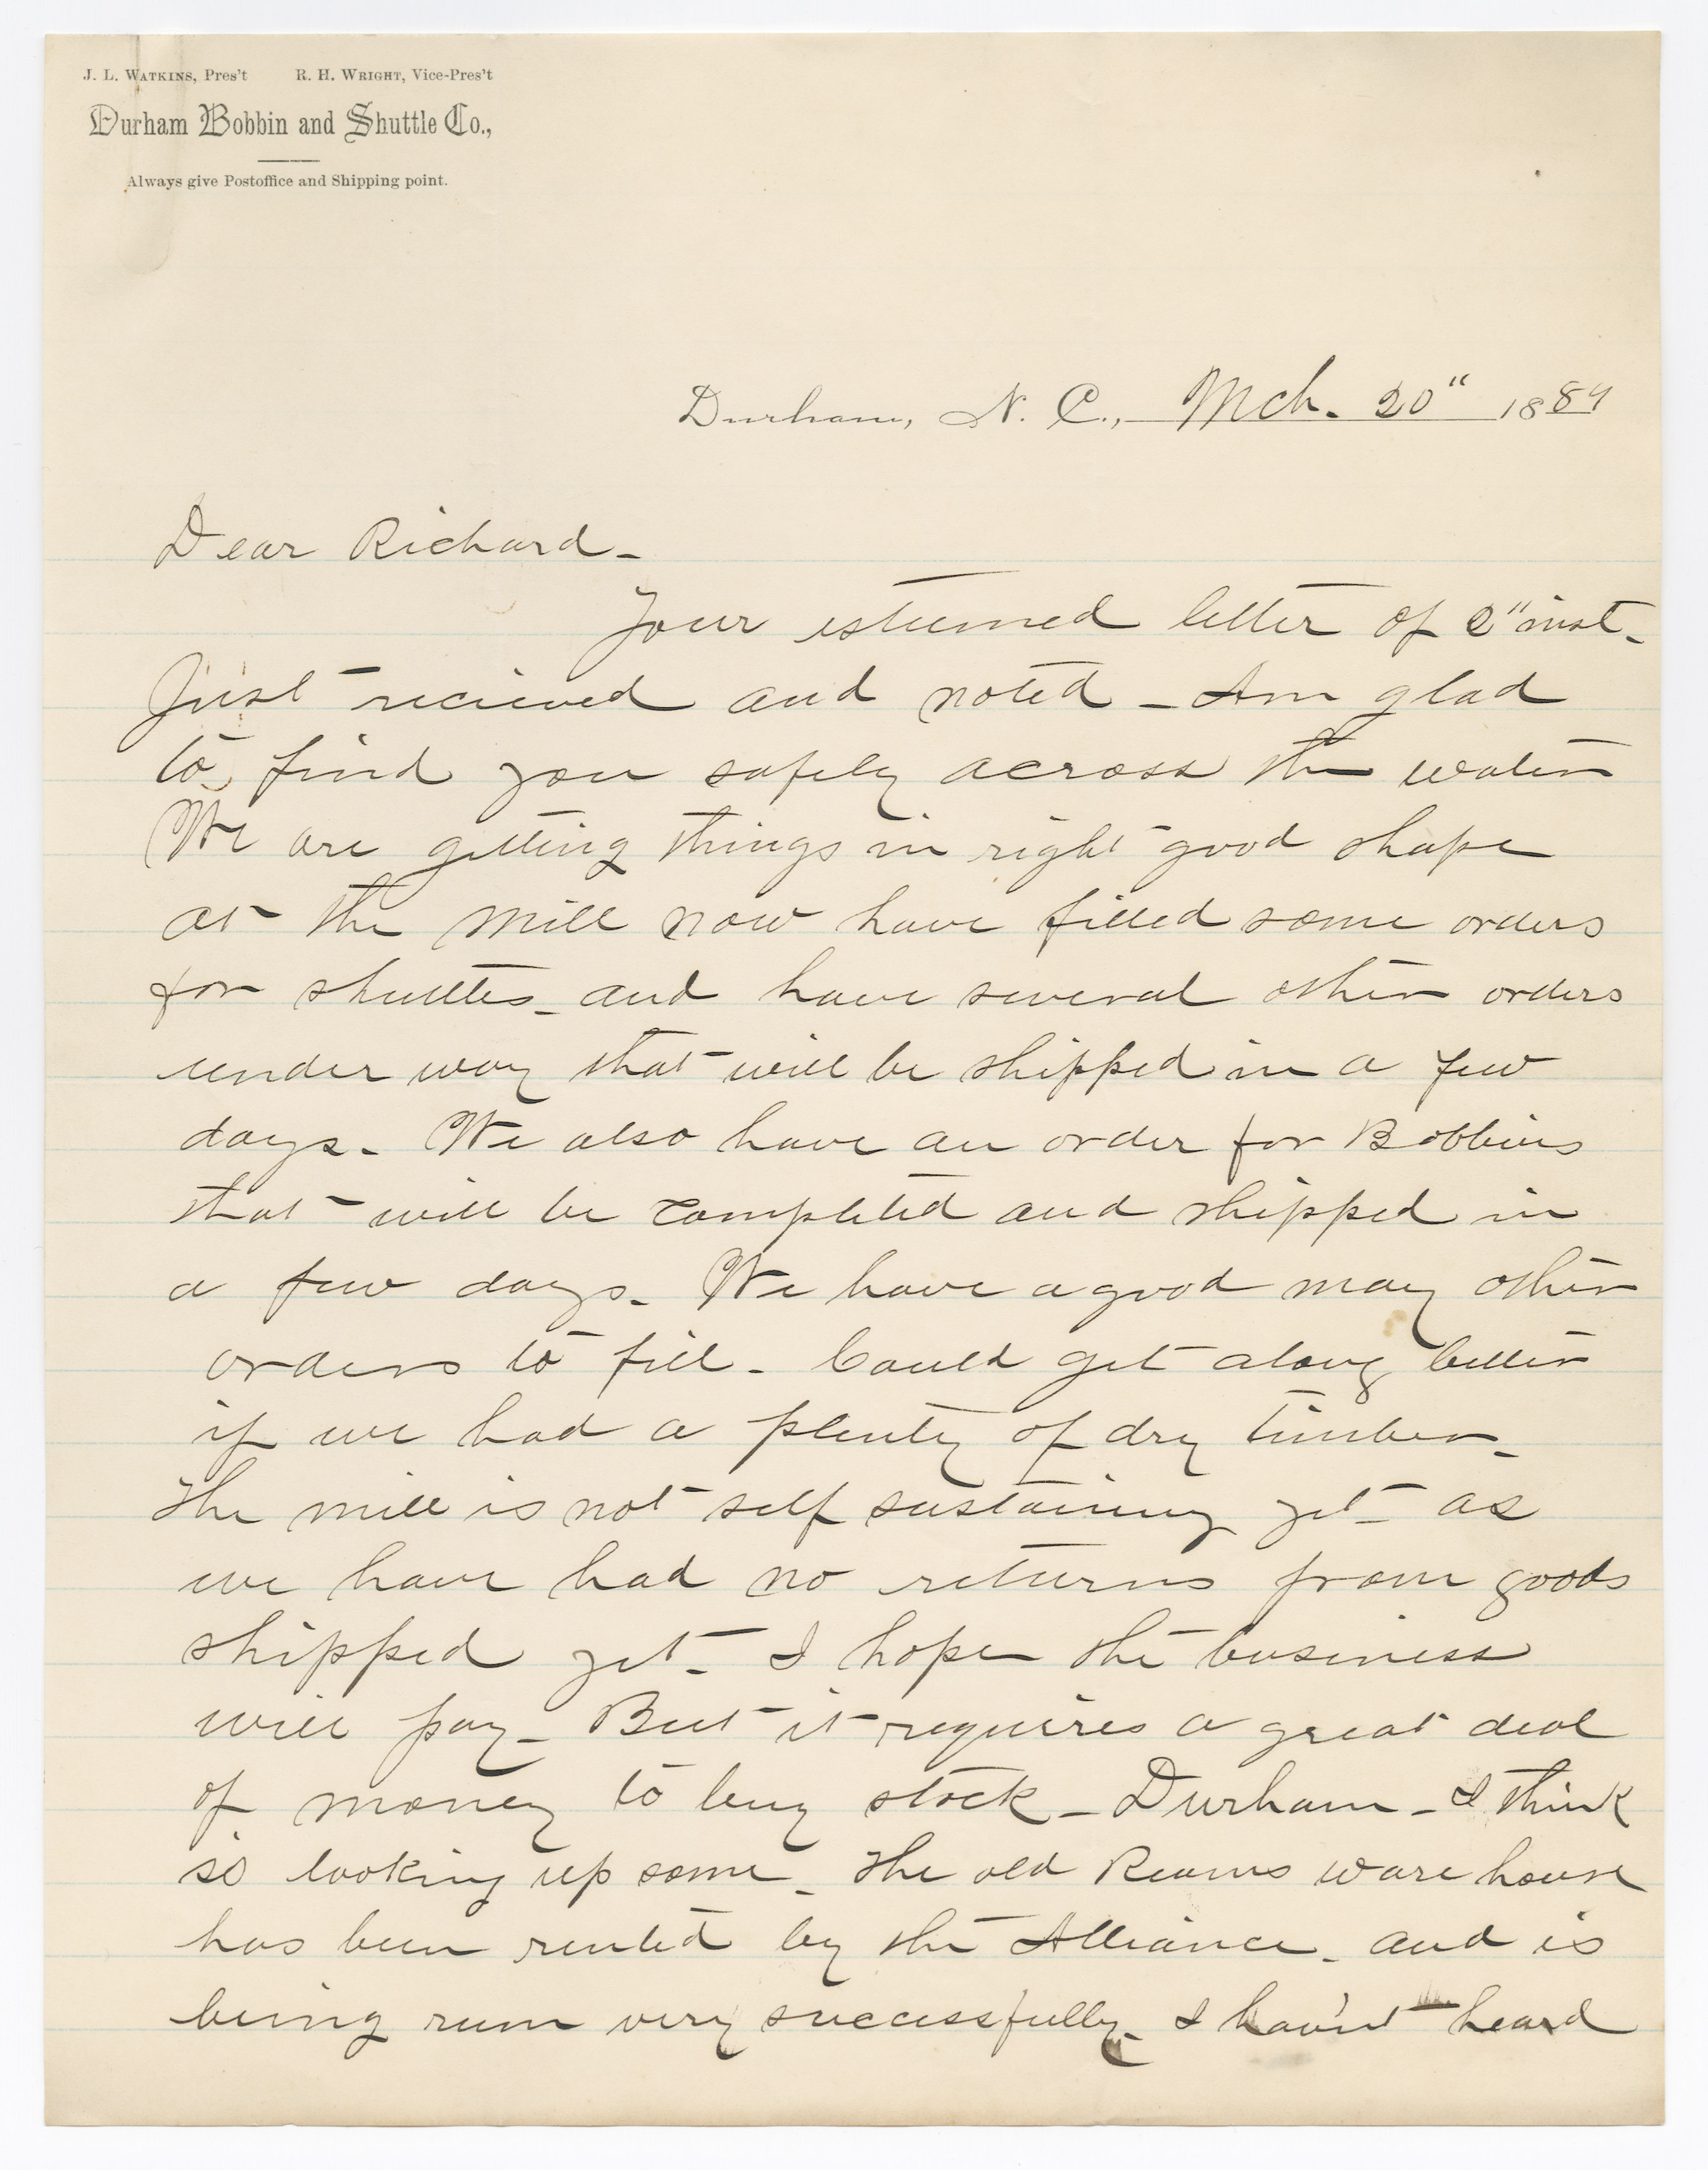 J. L. Watkins, Pres't R. H. Wright, Vice-Pres't
Durham Bobbin and Shuttle Co.,
Always give Postoffice and Shipping point.
Durham, N. C., Mch. 20" 1889
Dear Richard-
Your esteemed letter of 2" inst-
Just recieved and noted - Am glad
to find you safely across the water
We are getting things in right good shape
at the mill now have filled some orders
for shuttles - and have several other orders
under way that will be shipped in a few
days. We also have an order for Bobbins
that will be completed and shipped in
a few days. We have a good many other
orders to fill. Could get along better
if we had a plenty of dry timber.
The mill is not self sustaining yet as
we have had no returns from goods
shipped yet. I hope the business
will pay - But it requires a great deal
of money to buy stock - Durham - I think
is looking up some. The old Reams ware house
has been rented by the Alliance. and is
being run very successfully. I hav'nt heard